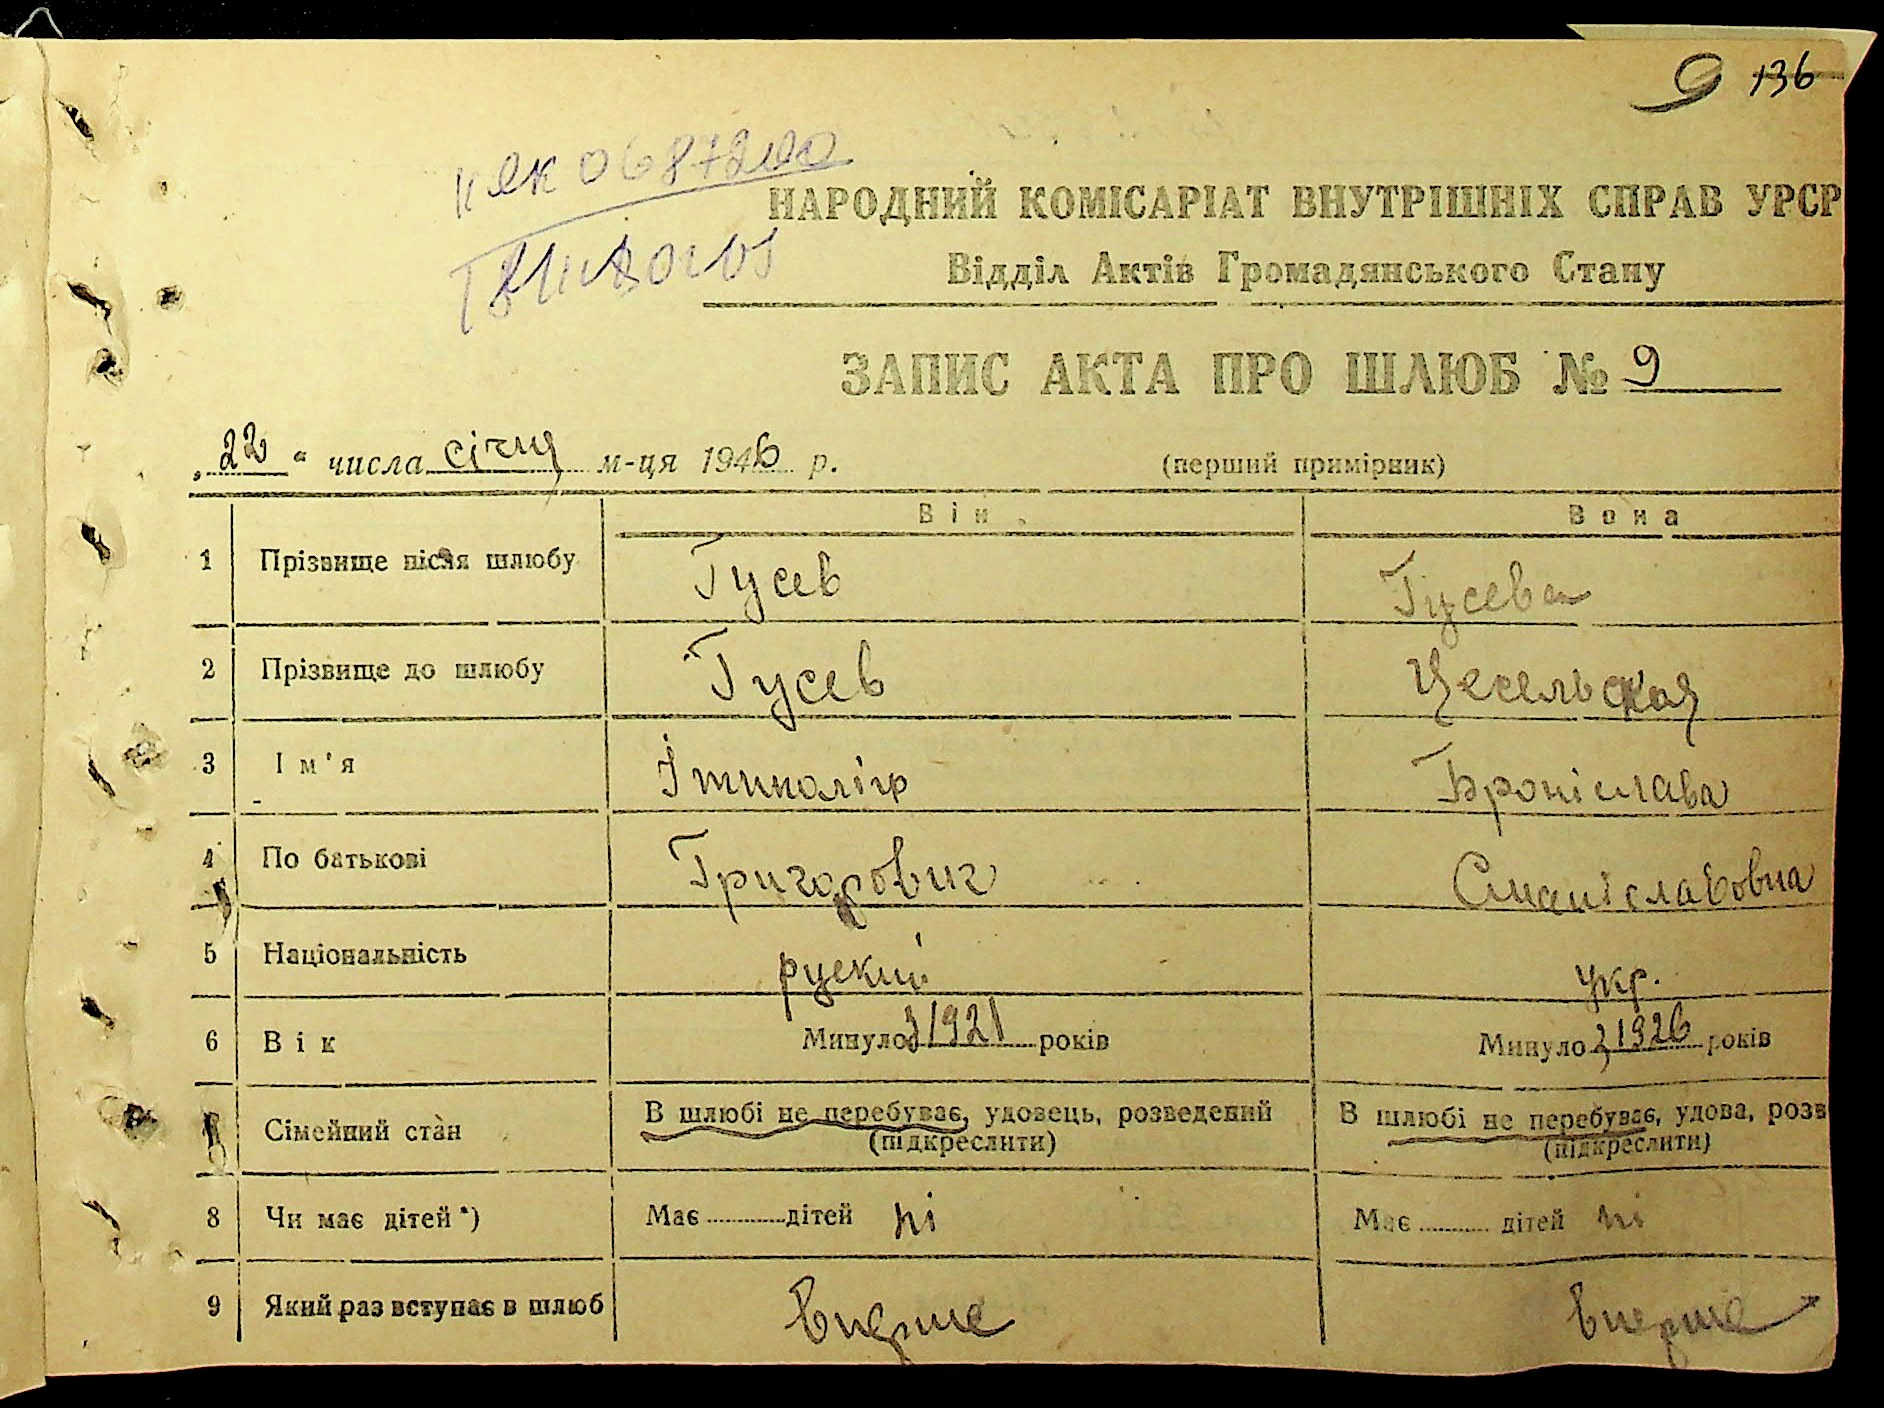 9 136
ЯК 0687200
НАРОДНИЙ КОМІСАРІАТ ВНУТРІШНІХ СПРАВ УРСР
Відділ Актів Громадянського Стану
ЗАПИС АКТА ПРО ШЛЮБ № 9
„22" числа січня м-ця 1946 р. (перший примірник)
Він Вона
1 Прізвище після шлюбу Гусев Гусева
2 Прізвище до шлюбу Гусев Цесельская
3 Ім'я Іпполіт Броніслава
4 По батькові Григорович Станіславовна
5 Національність руский укр.
6 Вік Минуло з 1921 років Минуло з 1926 років
Сімейний стан В шлюбі не перебуває, удовець, розведений В шлюбі не перебуває, удова, розв
(підкреслити) (підкреслити)
8 Чи має дітей*) Має дітей ні Має дітей ні
9 Який раз вступає в шлюб вперше вперше